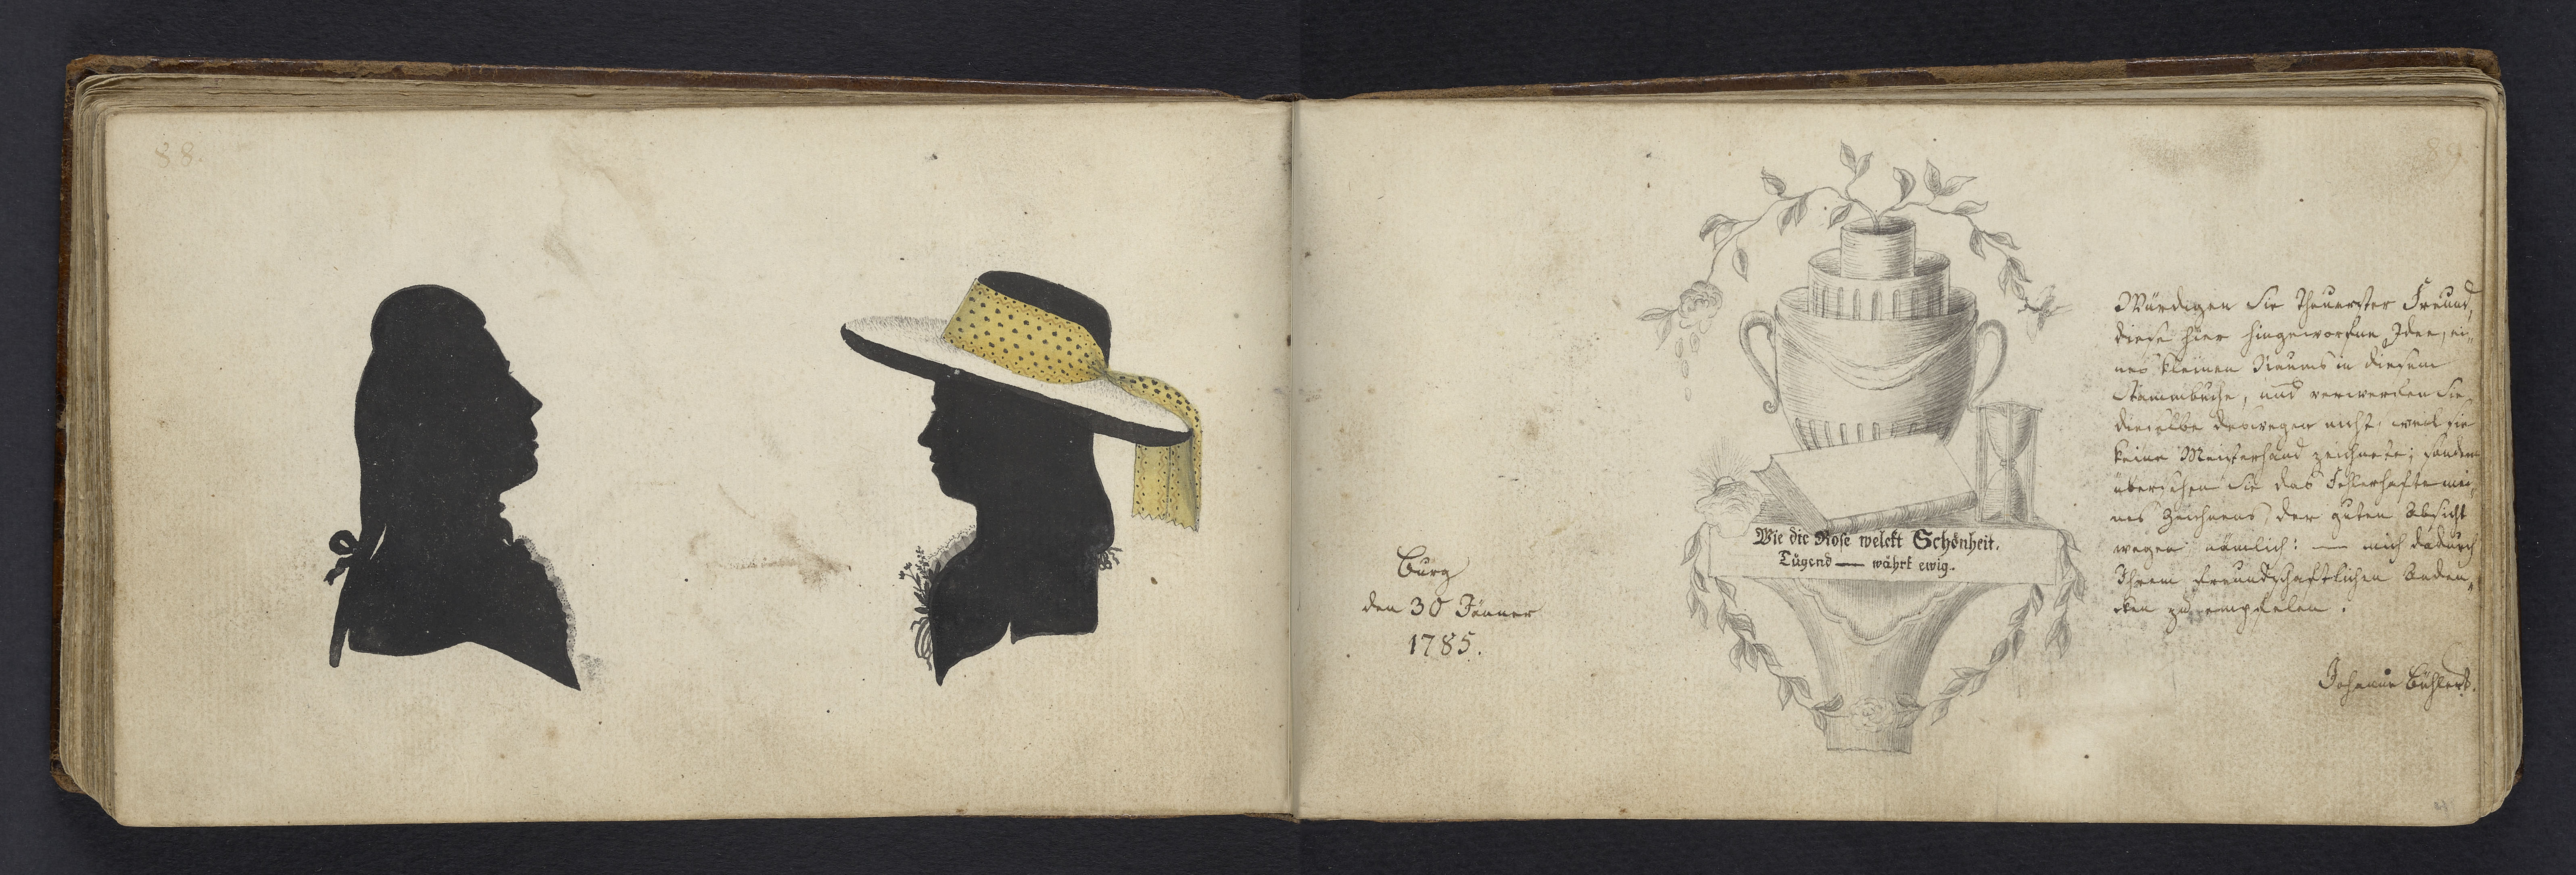 88.
89
Burg
den 30 Jänner
1785.
Wie die Rose welckt Schönheit.
Tugend — währt ewig.
Würdigen Sie theuerster Freund,
diese hier hingeworfne Idee, ei„
nes kleinen Raums in diesem
Stammbuche, und verwerfen Sie
dieselbe deswegen nicht, weil sie
keine Meisterhand zeichnete; sondern
übersehen Sie das Fehlerhafte mei„
nes Zeichnens, der guten Absicht
wegen nämlich: — mich dadurch
Ihrem freundschaftlichen Anden„
cken zu empfelen.
Johanne Bühlert.